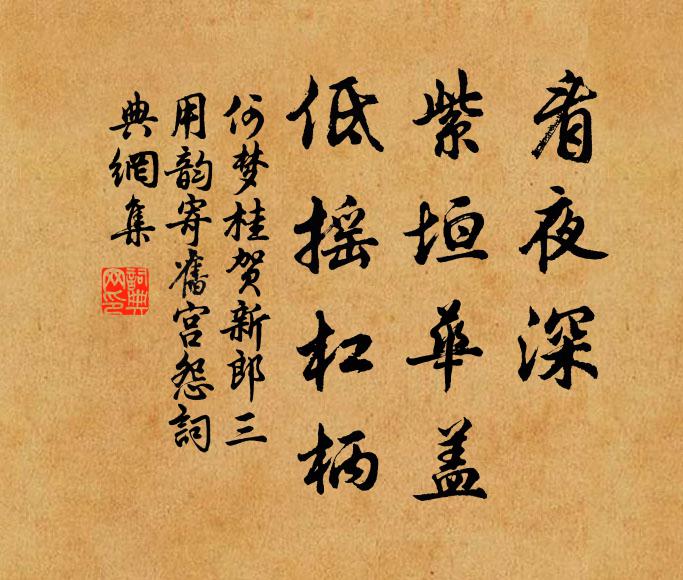 看夜深
紫垣華盖
低摇杠柄
何梦桂贺新郎三
用韵寄舊宫怨詞
典網集
詞典網印